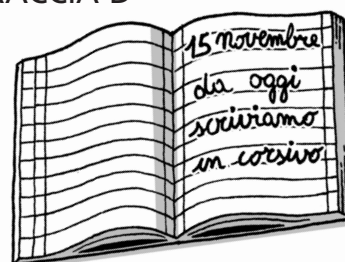 15 novembre
da oggi
scriviamo
in corsivo